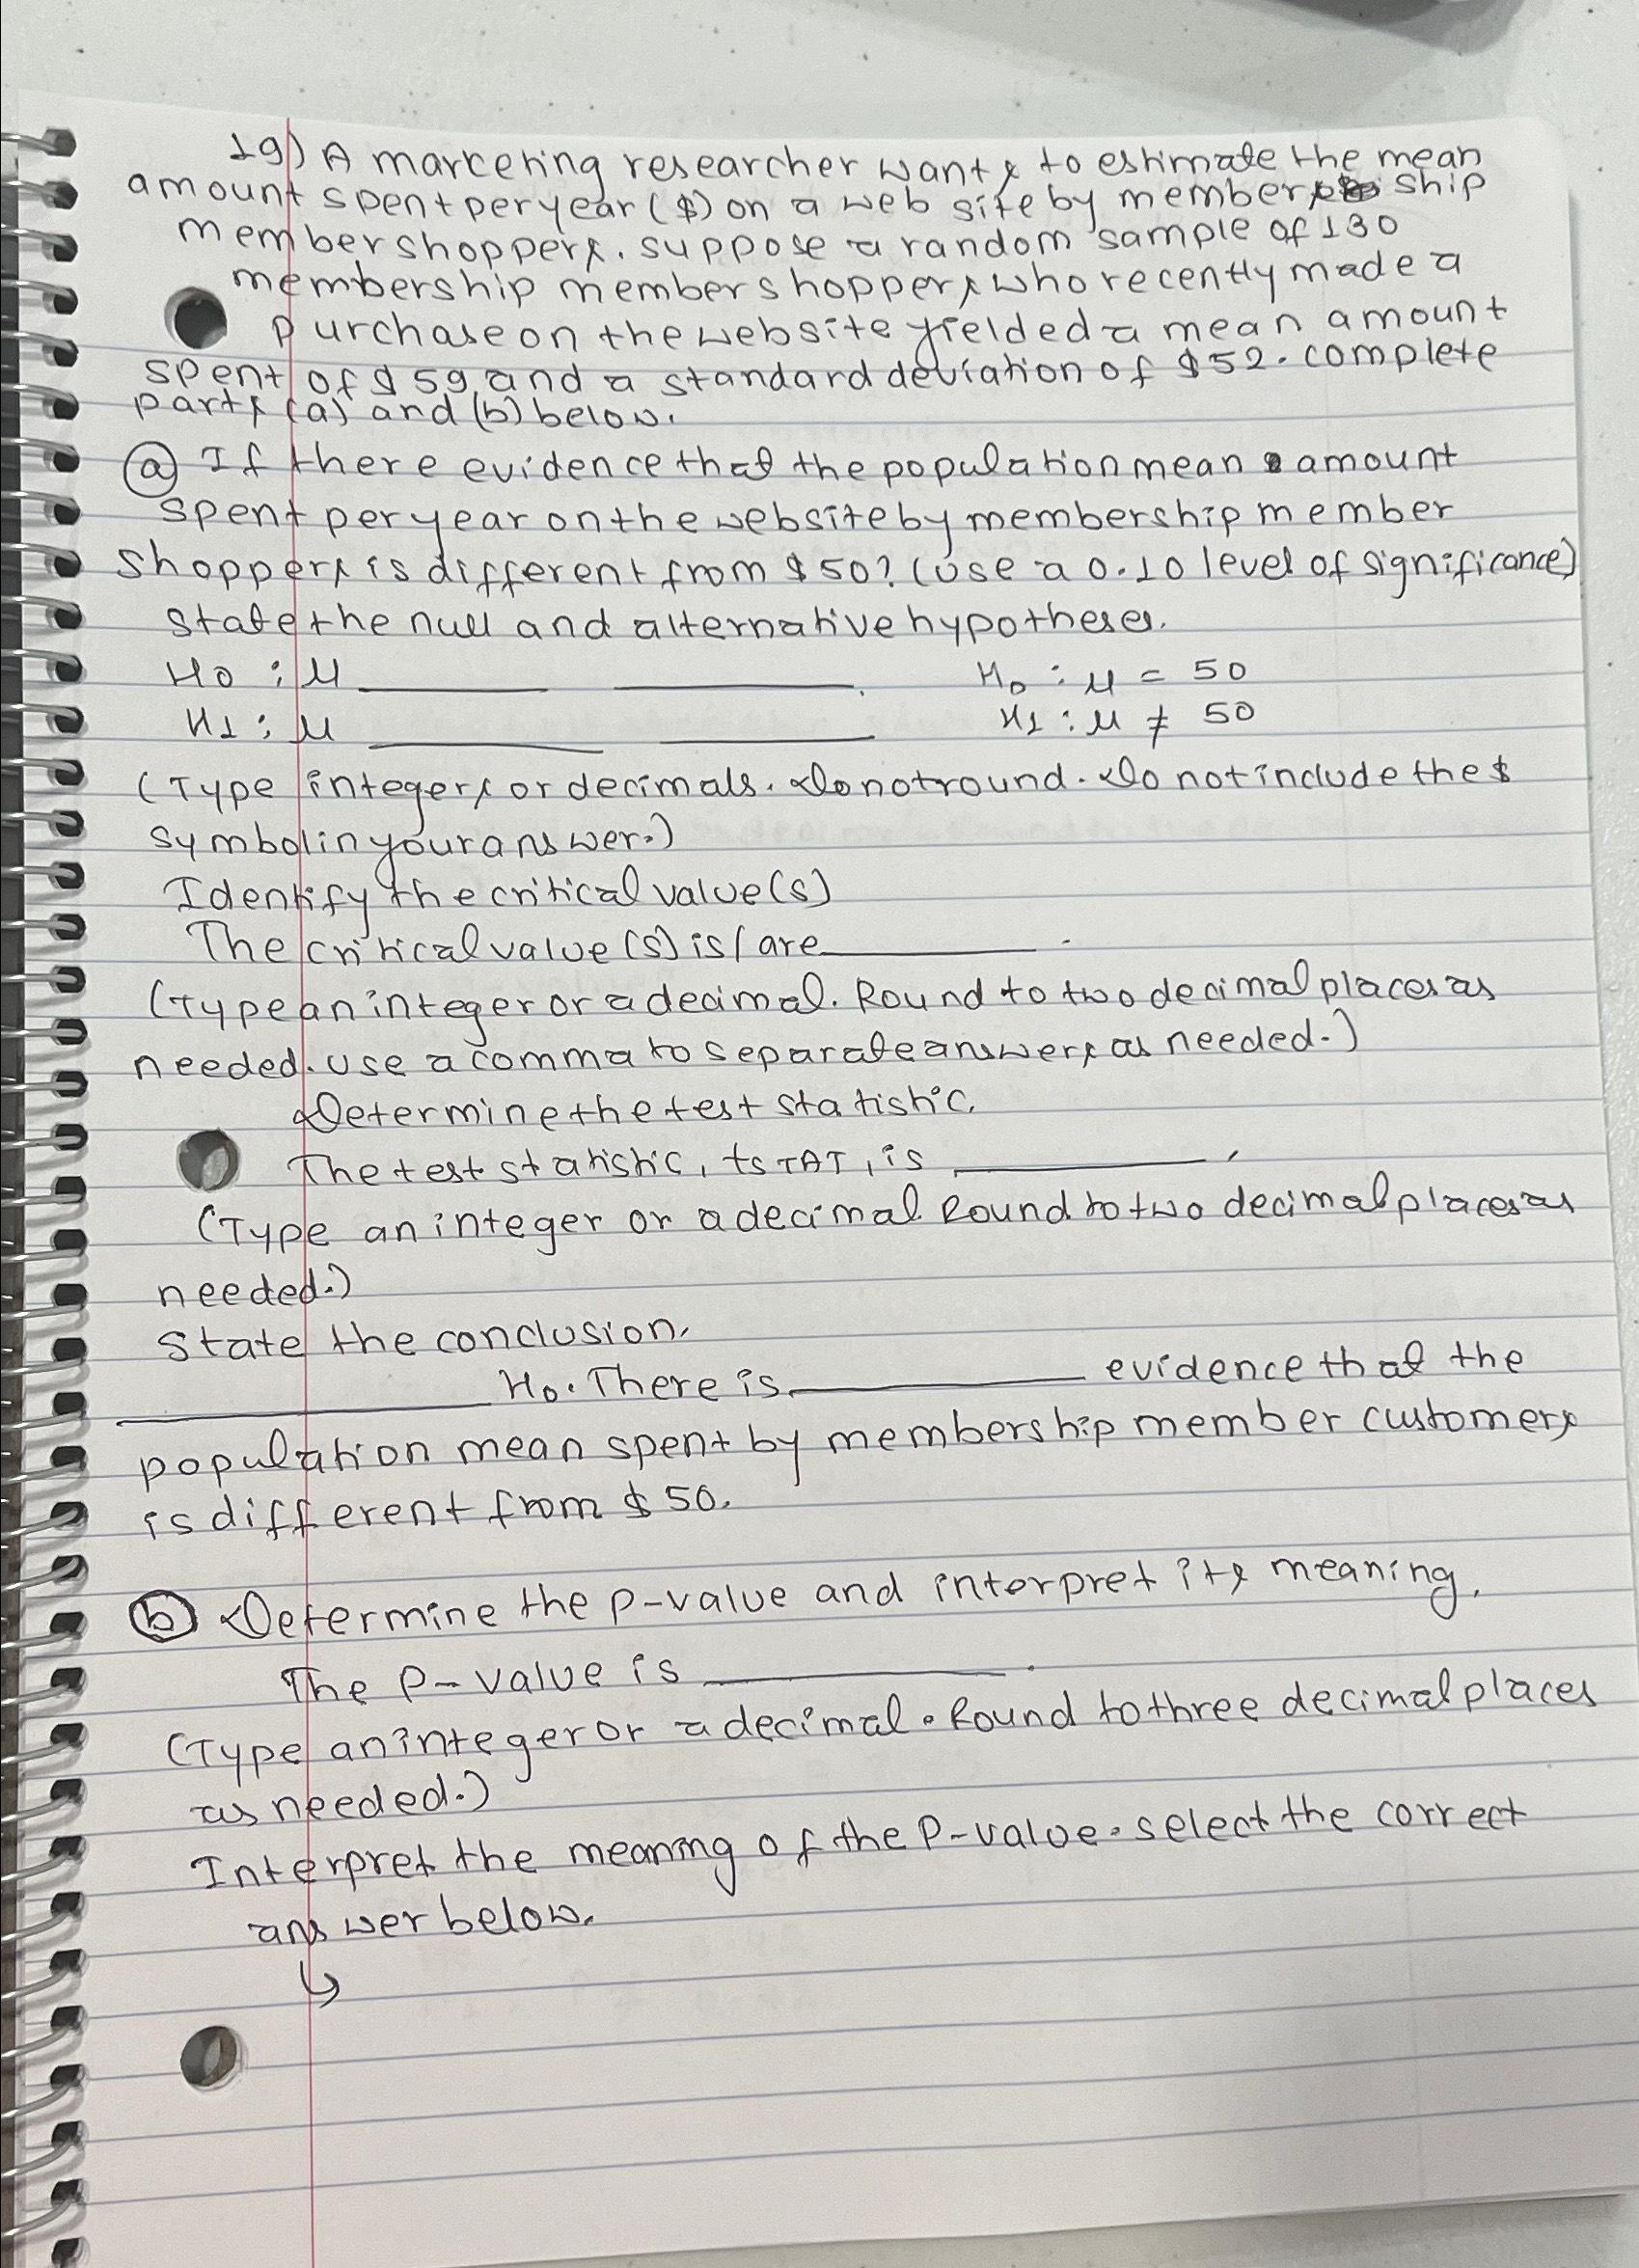 19) A marketing researcher wants to estimate the mean
amount spent per year ($) on a web site by member ship
member shoppers. suppose a random sample of 130
membership member shoppers who recently made a
purchase on the website yielded a mean amount
spent of $59 and a standard deviation of $52. complete
parts (a) and (b) below.
(a) If there evidence that the population mean amount
spent per year on the website by membership member
shoppers is different from $50? (Use a 0.10 level of significance)
State the null and alternative hypotheses.
H0 : μ ______ ______. H0 : μ = 50
H1 : μ ______ ______ H1 : μ ≠ 50
(Type integers or decimals. Do not round. Do not include the $
symbol in your answer.)
Identify the critical value(s)
The critical value(s) is/are ______.
(Type an integer or a decimal. Round to two decimal places as
needed. Use a comma to separate answers as needed.)
Determine the test statistic.
The test statistic, tSTAT, is ______,
(Type an integer or a decimal. Round to two decimal places as
needed.)
State the conclusion.
______ H0. There is ______ evidence that the
population mean spent by membership member customers
is different from $50.
(b) Determine the p-value and interpret its meaning.
The P-value is ______.
(Type an integer or a decimal. Round to three decimal places
as needed.)
Interpret the meaning of the P-value. select the correct
answer below.
↳